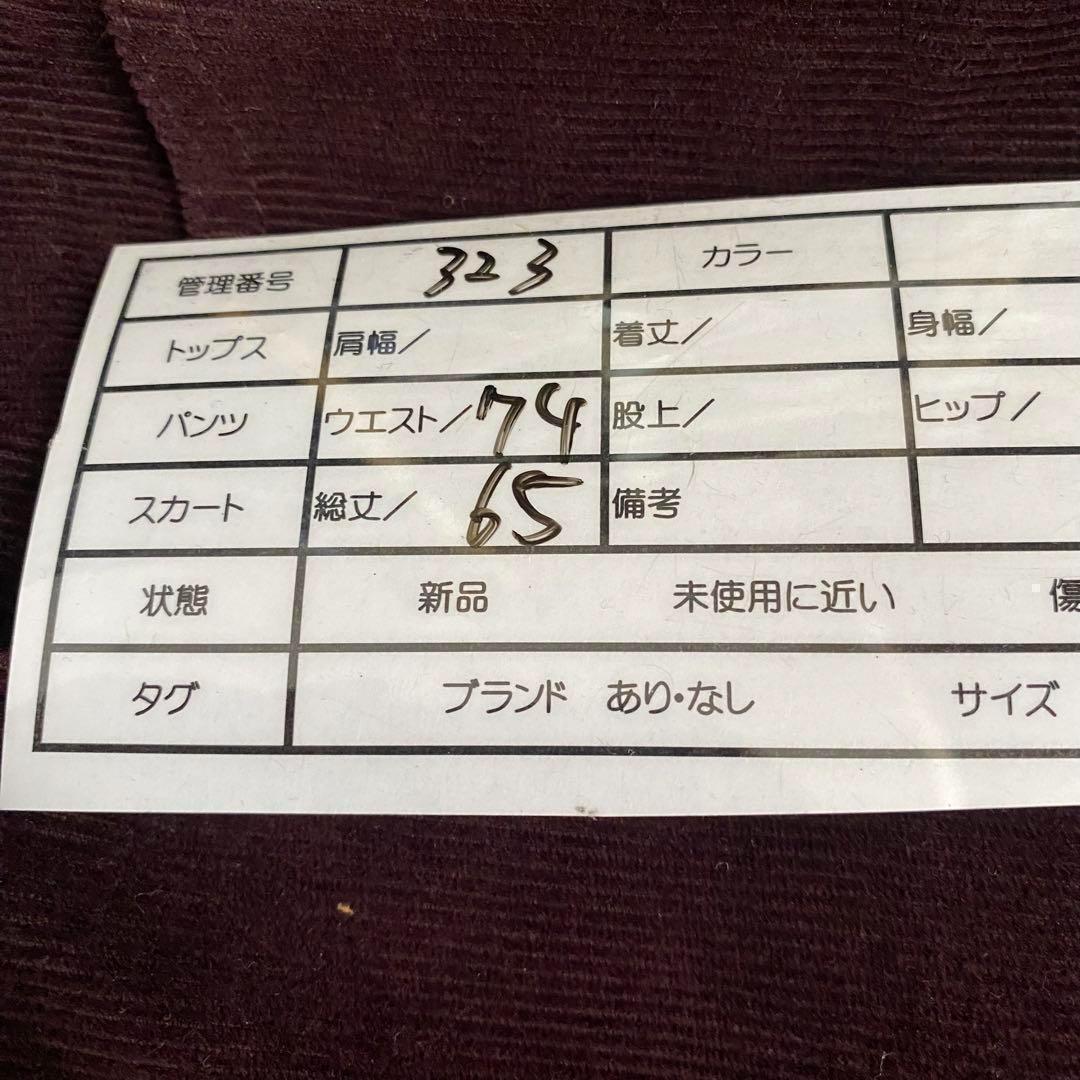 管理番号 323 カラー
トップス 肩幅/ 着丈/ 身幅/
パンツ ウエスト/74 股上/ ヒップ/
スカート 総丈/ 65 備考
状態 新品 未使用に近い 傷
タグ ブランド あり・なし サイズ